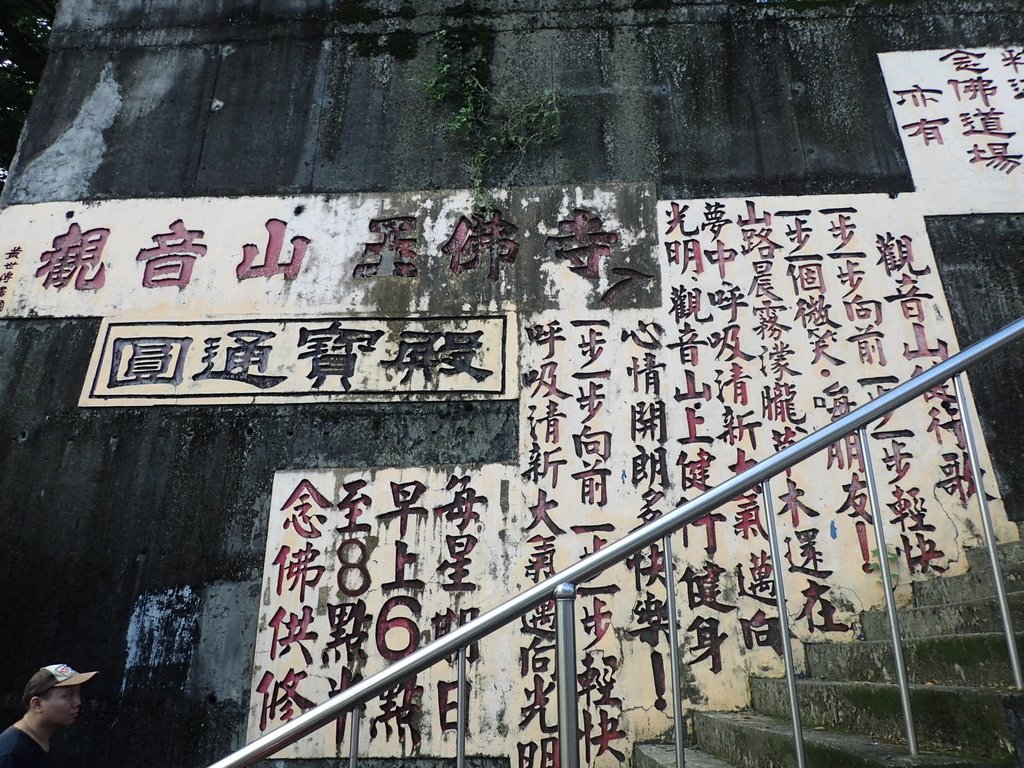 念佛道場
亦有
觀音山玉佛寺
圓通寶殿
觀音山健行歌
一步一步向前 一步一步輕快
一步一個微笑·每朋友!
山路晨霧濛朧草木還在
夢中呼吸清新大氣邁向
光明觀音山上健行健身
心情開朗多快樂!
一步一步向前 一步一步輕快
呼吸清新大氣邁向光明
每星期日
早上6點
至8點半
念佛供修